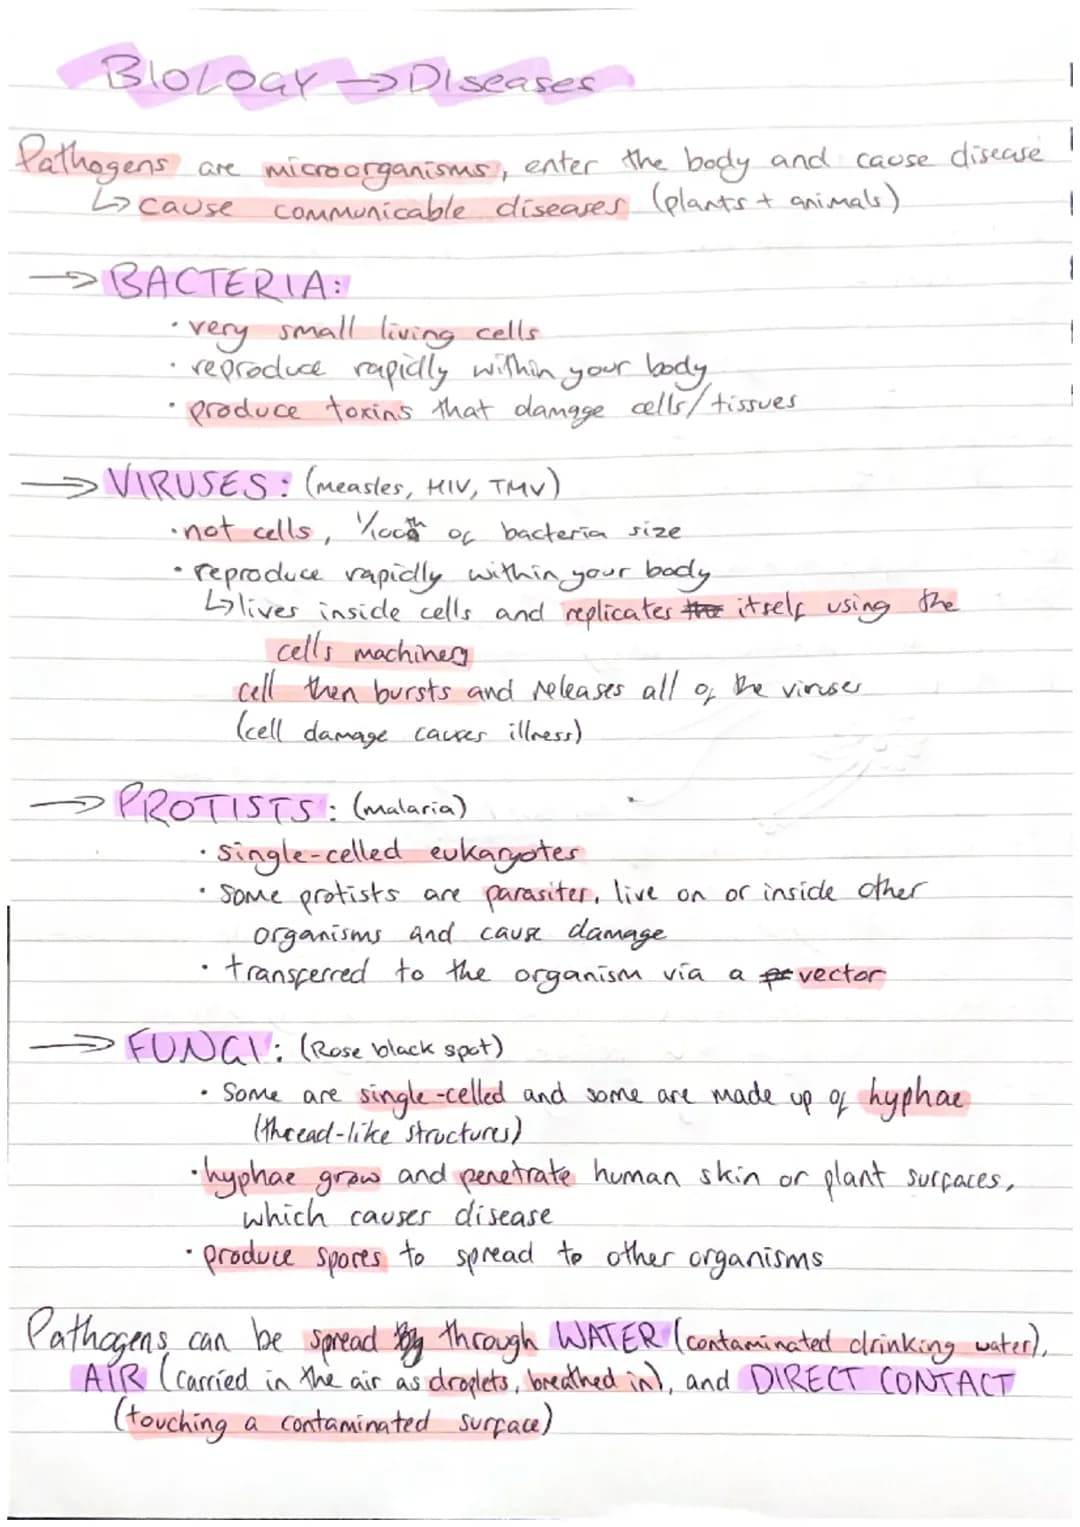 BIOLOGY → Diseases
Pathogens are microorganisms, enter the body and cause disease
↳ cause communicable diseases (plants + animals)
→ BACTERIA:
· very small living cells
· reproduce rapidly within your body
· produce toxins that damage cells/tissues
→ VIRUSES: (measles, HIV, TMV)
· not cells, 1/100th of bacteria size
· reproduce rapidly within your body
↳ lives inside cells and replicates itself using the
cells machinery
cell then bursts and releases all of the viruses
(cell damage causes illness)
→ PROTISTS: (malaria)
· single-celled eukaryotes
· some protists are parasites, live on or inside other
organisms and cause damage
· transferred to the organism via a vector
→ FUNGI: (Rose black spot)
· Some are single-celled and some are made up of hyphae
(thread-like structures)
· hyphae grow and penetrate human skin or plant surfaces,
which causes disease
· produce spores to spread to other organisms
Pathogens can be spread through WATER (contaminated drinking water),
AIR (carried in the air as droplets, breathed in), and DIRECT CONTACT
(touching a contaminated surface)